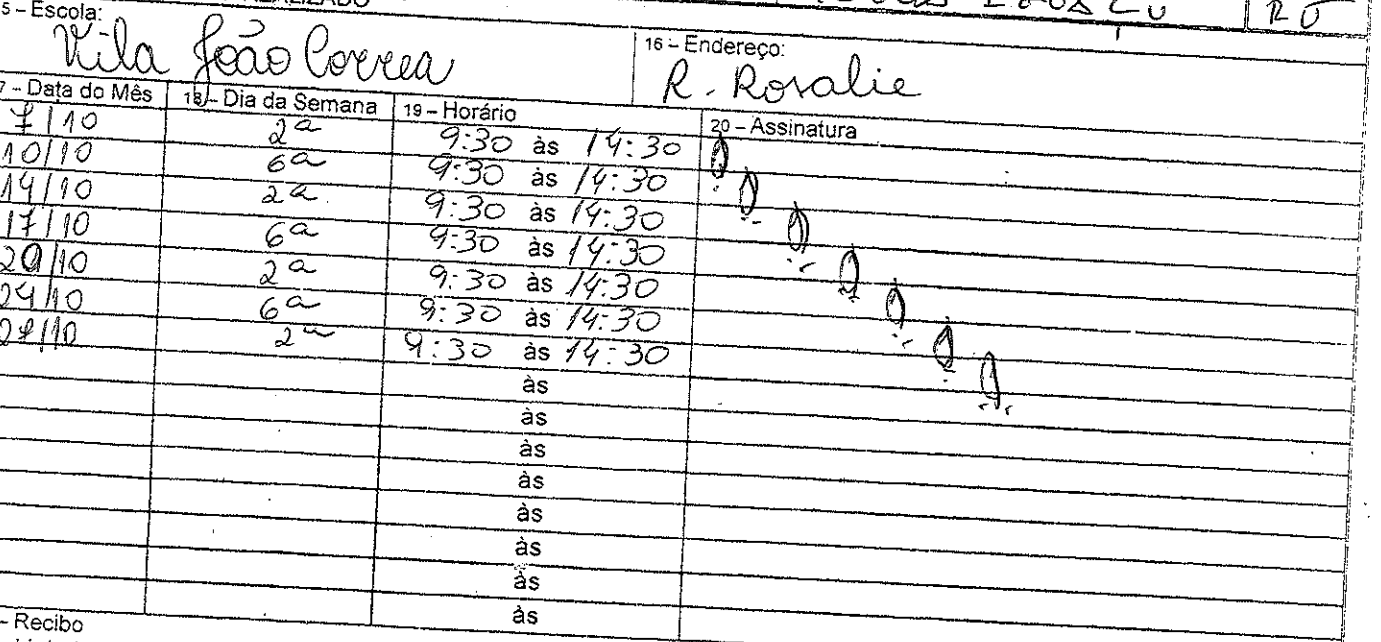 REALIZADO
5 – Escola:
Vila João Correa
16 – Endereço:
R. Rosalie
7 – Data do Mês 18 – Dia da Semana 19 – Horário 20 – Assinatura
7/10 2ª 9:30 às 14:30
10/10 6ª 9:30 às 14:30
14/10 2ª 9:30 às 14:30
17/10 6ª 9:30 às 14:30
20/10 2ª 9:30 às 14:30
24/10 6ª 9:30 às 14:30
27/10 2ª 9:30 às 14:30
às
às
às
às
às
às
às
às
– Recibo